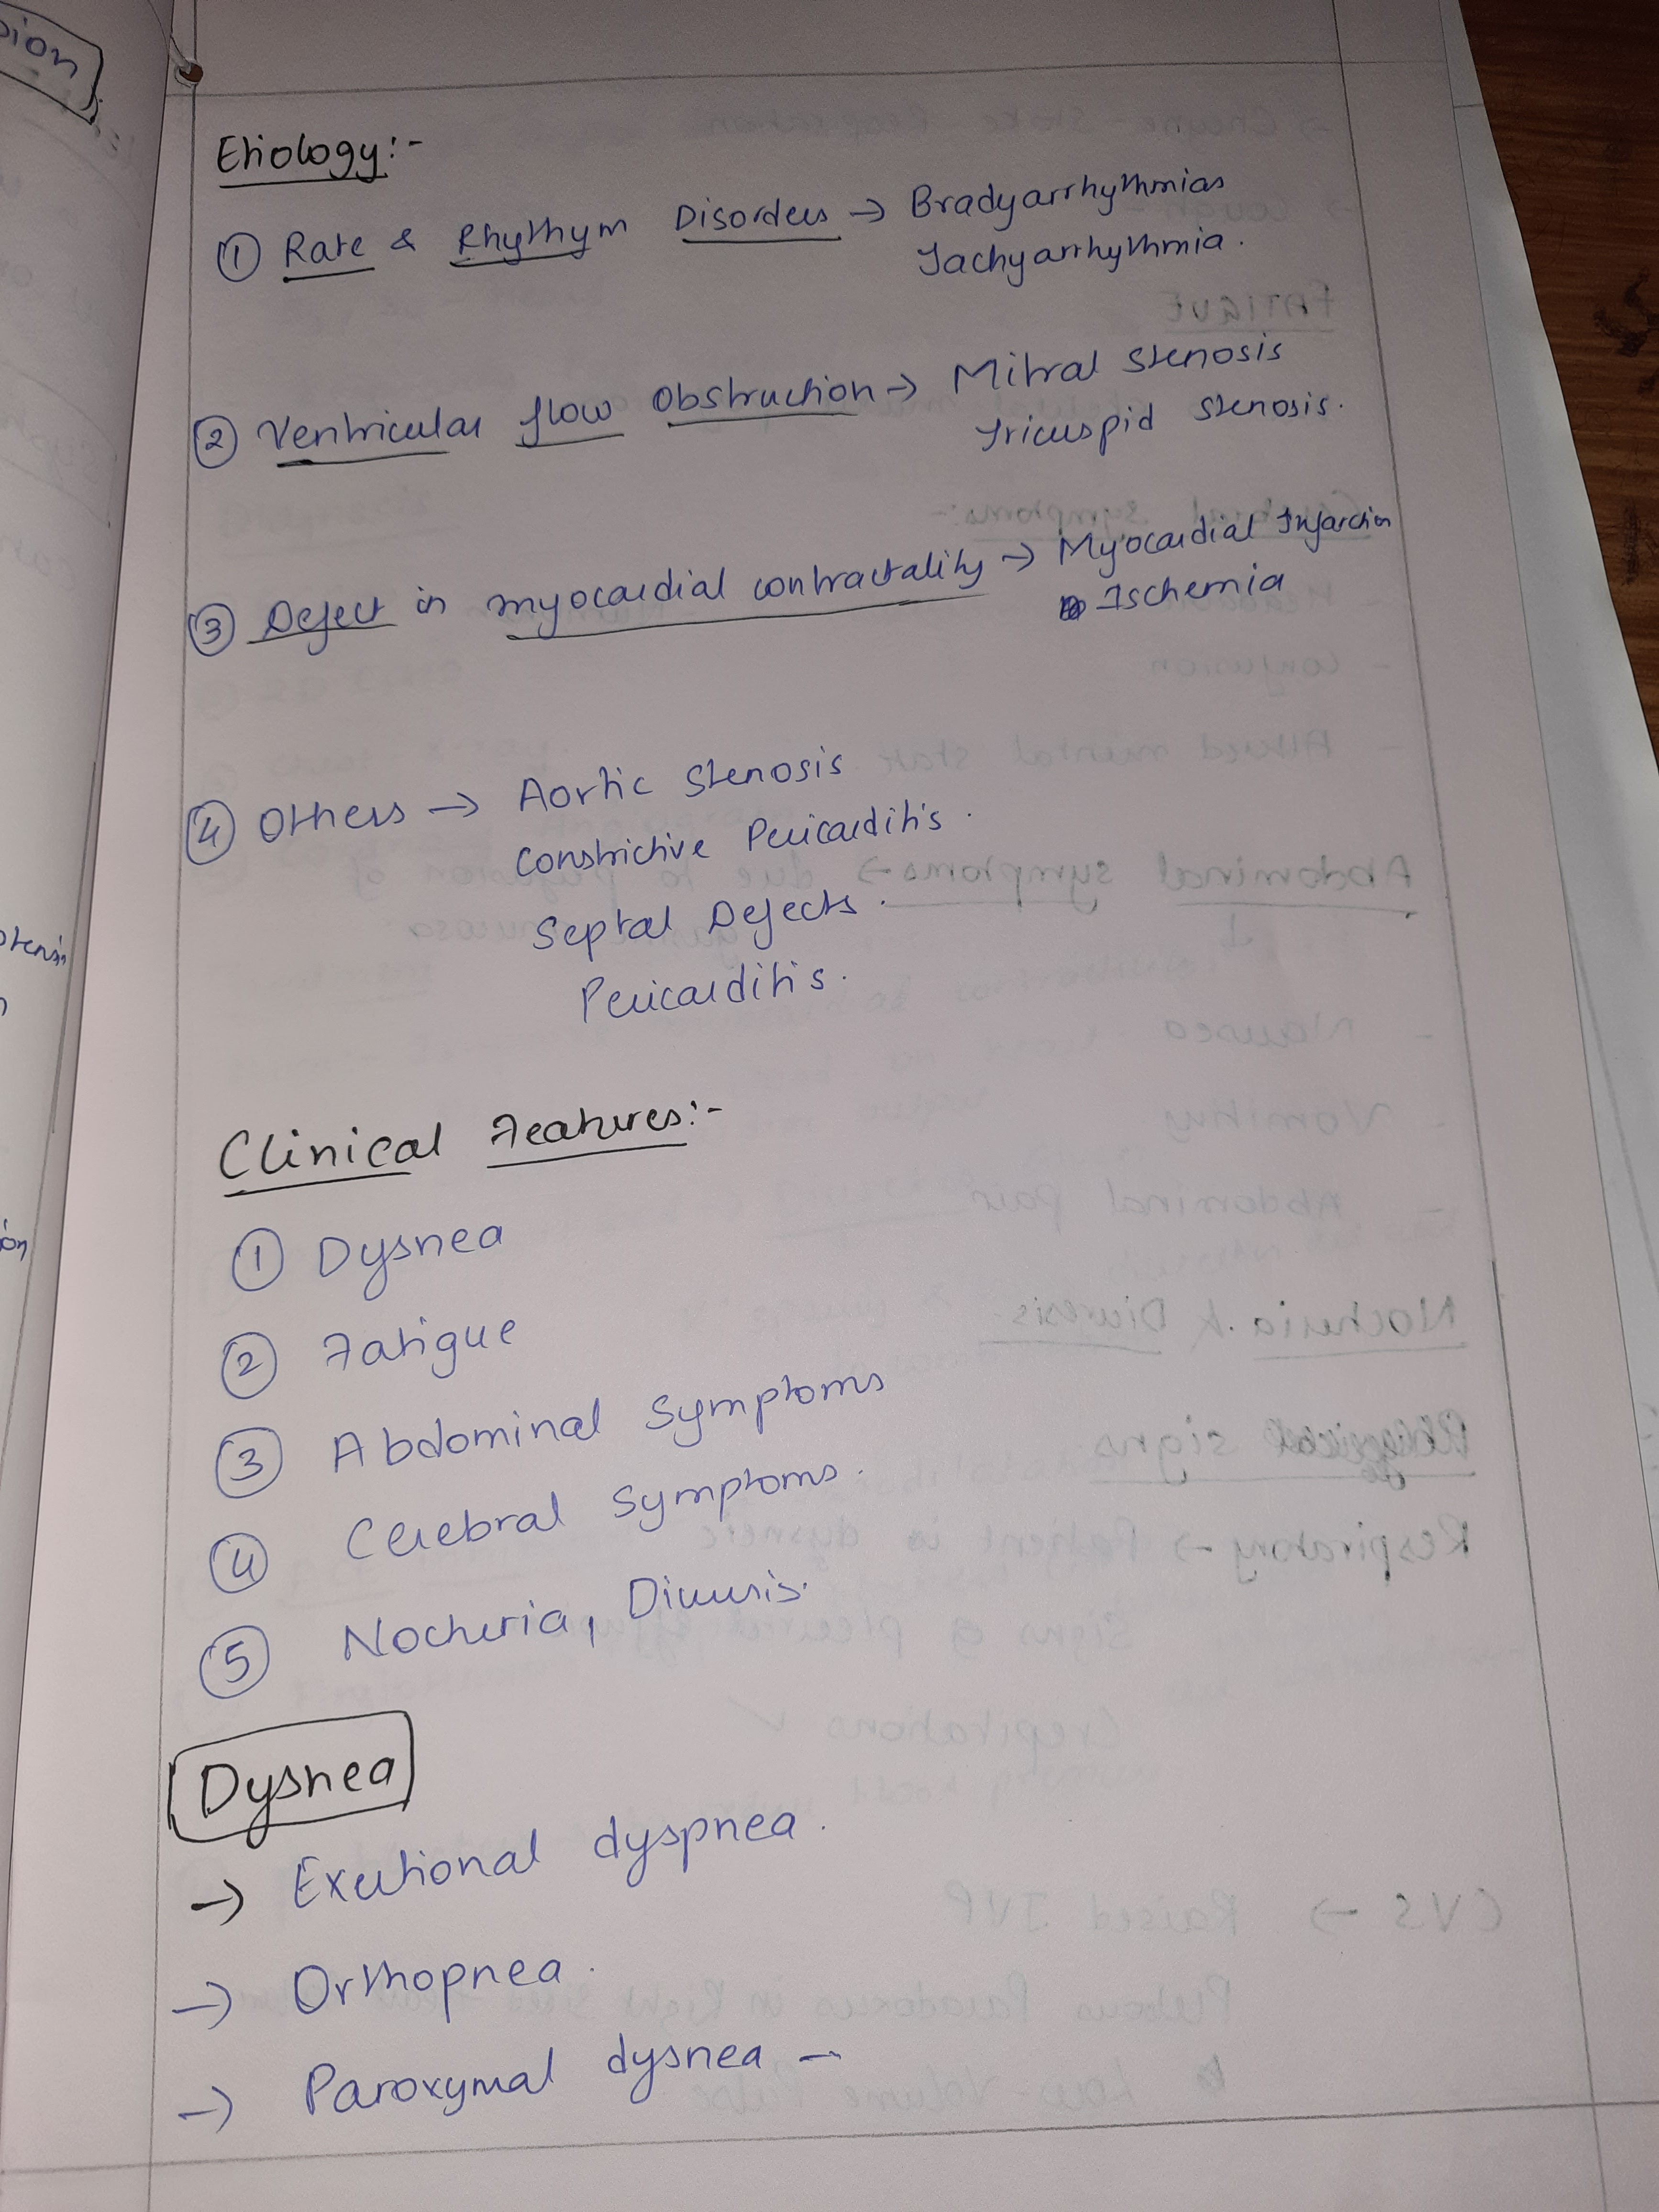 Etiology:-
① Rate & Rhythym Disorders → Bradyarrhythmias
Tachyarrhythmia.
② Ventricular flow Obstruction → Mitral Stenosis
Tricuspid Stenosis.
③ Defect in myocardial contractality → Myocardial Infarction
Ischemia
④ Others → Aortic Stenosis
Constrictive Pericarditis.
Septal Defects.
Pericarditis.
Clinical Features:-
① Dysnea
② Fatigue
③ Abdominal Symptoms
④ Cerebral Symptoms.
⑤ Nocturia, Diuresis.
Dysnea
→ Exertional dyspnea.
→ Orthopnea.
→ Paroxymal dysnea -